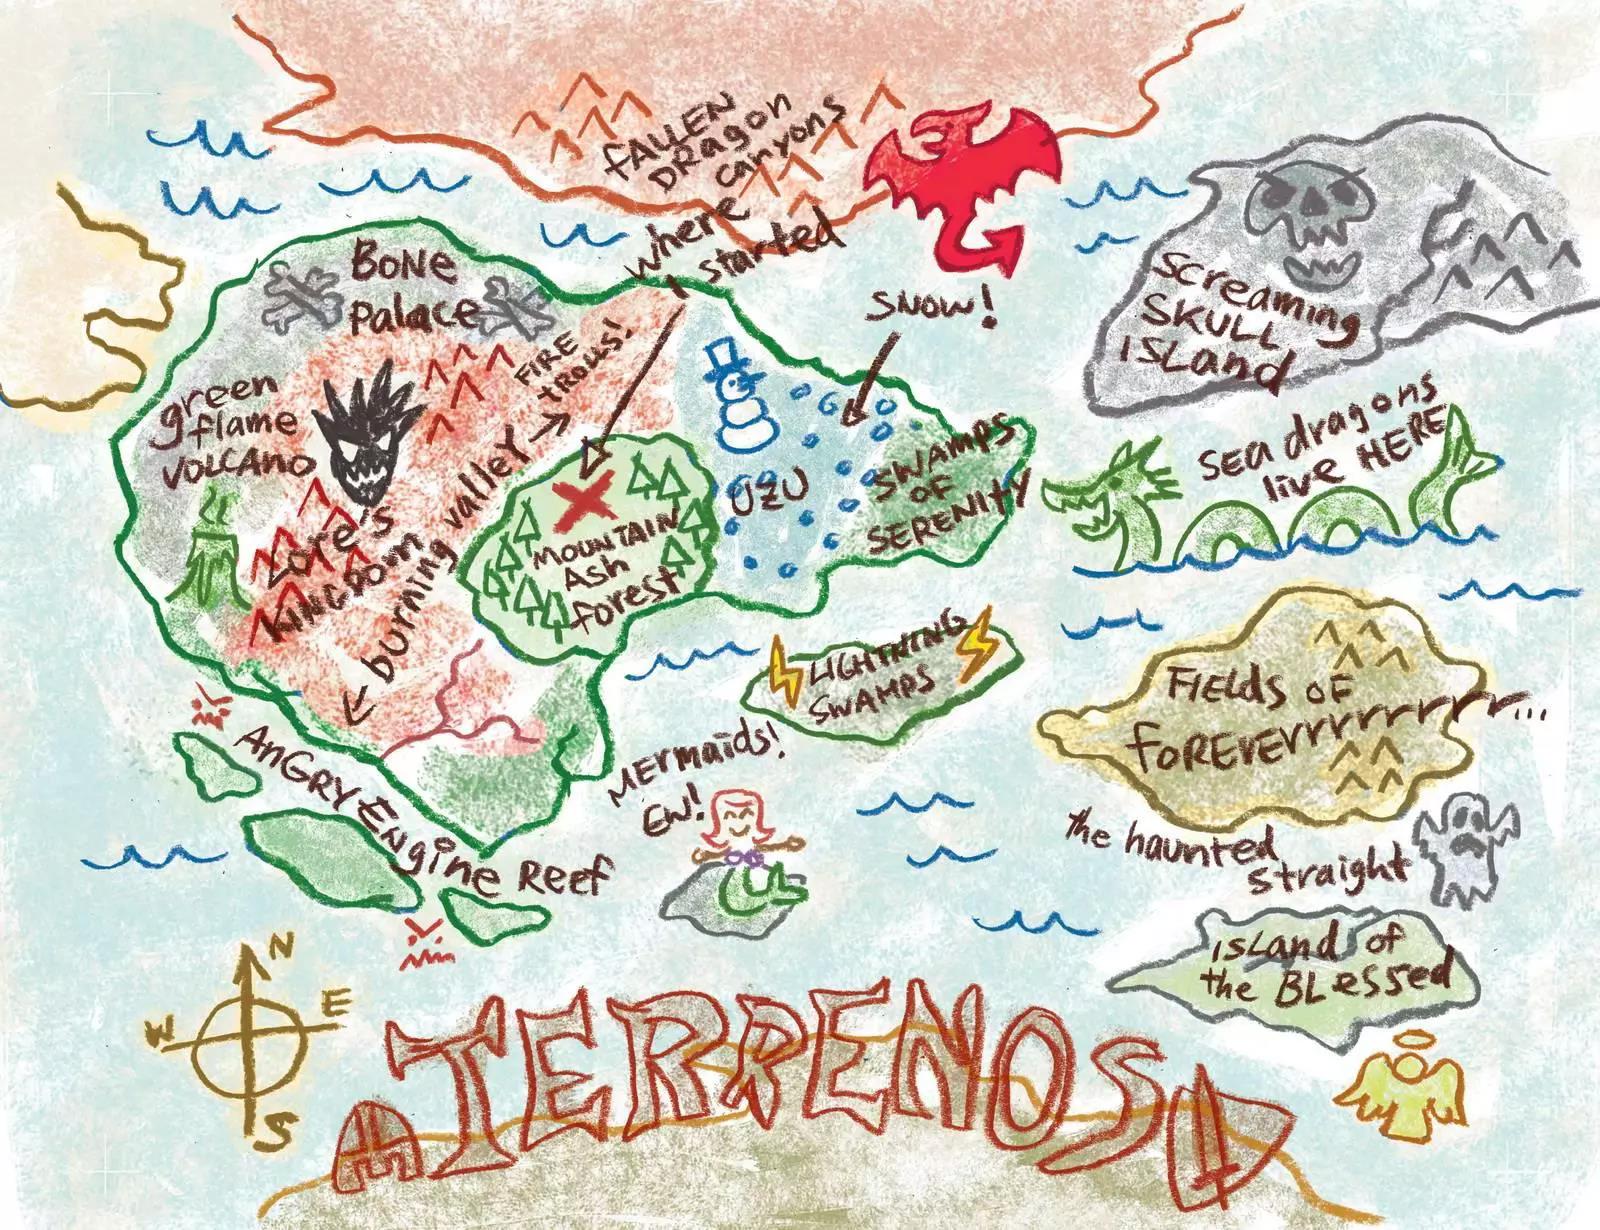 FALLEN
DRagon
canyons
where
I started
SNOW!
BONE
Palace
FIRE
tROLLS!
green
flame
VOLCANO
Lore's
KINGDOM
burning valley
UZU
SWAMPS
OF
SERENITY
MOUNTAIN
ASh
forest
Screaming
SKULL
ISLand
Sea dragons
live HERE
LIGHTNING
SWAMPS
FIELds OF
FOREVERrrrrrrrrr...
the haunted
straight
ISLand of
the BLessed
MERmaids!
EW!
ANGRY ENgine REEf
N
W E
S
TERRENOS